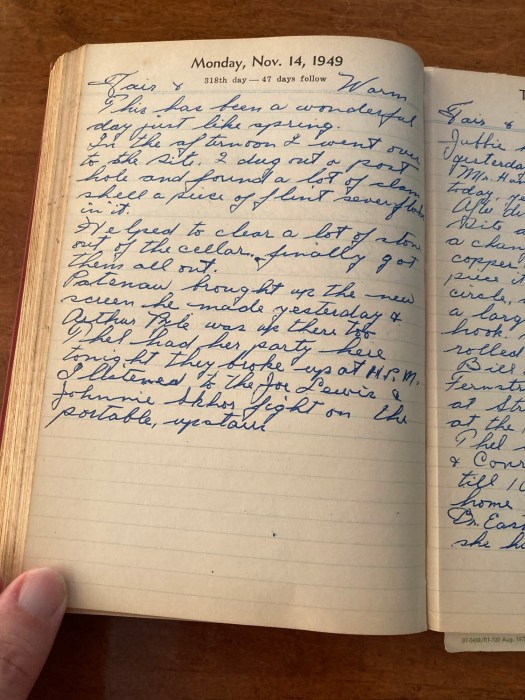 Monday, Nov. 14, 1949
318th day — 47 days follow
Fair & Warm
This has been a wonderful
day just like spring.
In the afternoon I went over
to the site. I dug out a post
hole and found a lot of clam
shell a piece of flint several
in it.
Helped to clear a lot of stone
out of the cellar. finally got
them all out.
Patenau brought up the new
screen he made yesterday &
Arthur Pole was up there too
Thel had her party here
tonight they broke up at P.M.
I listened to the Joe Lewis &
Johnnie fight on the
portable, upstairs
Fair &
Jubbie
yesterda
Mr. Hut
today.
After di
Site a
a chan
copper
piece
circle,
a larg
hook.
rolled
Bill
Fernstr
at St
at the
Thel
& Conr
till 10
home
Dr. East
she ha